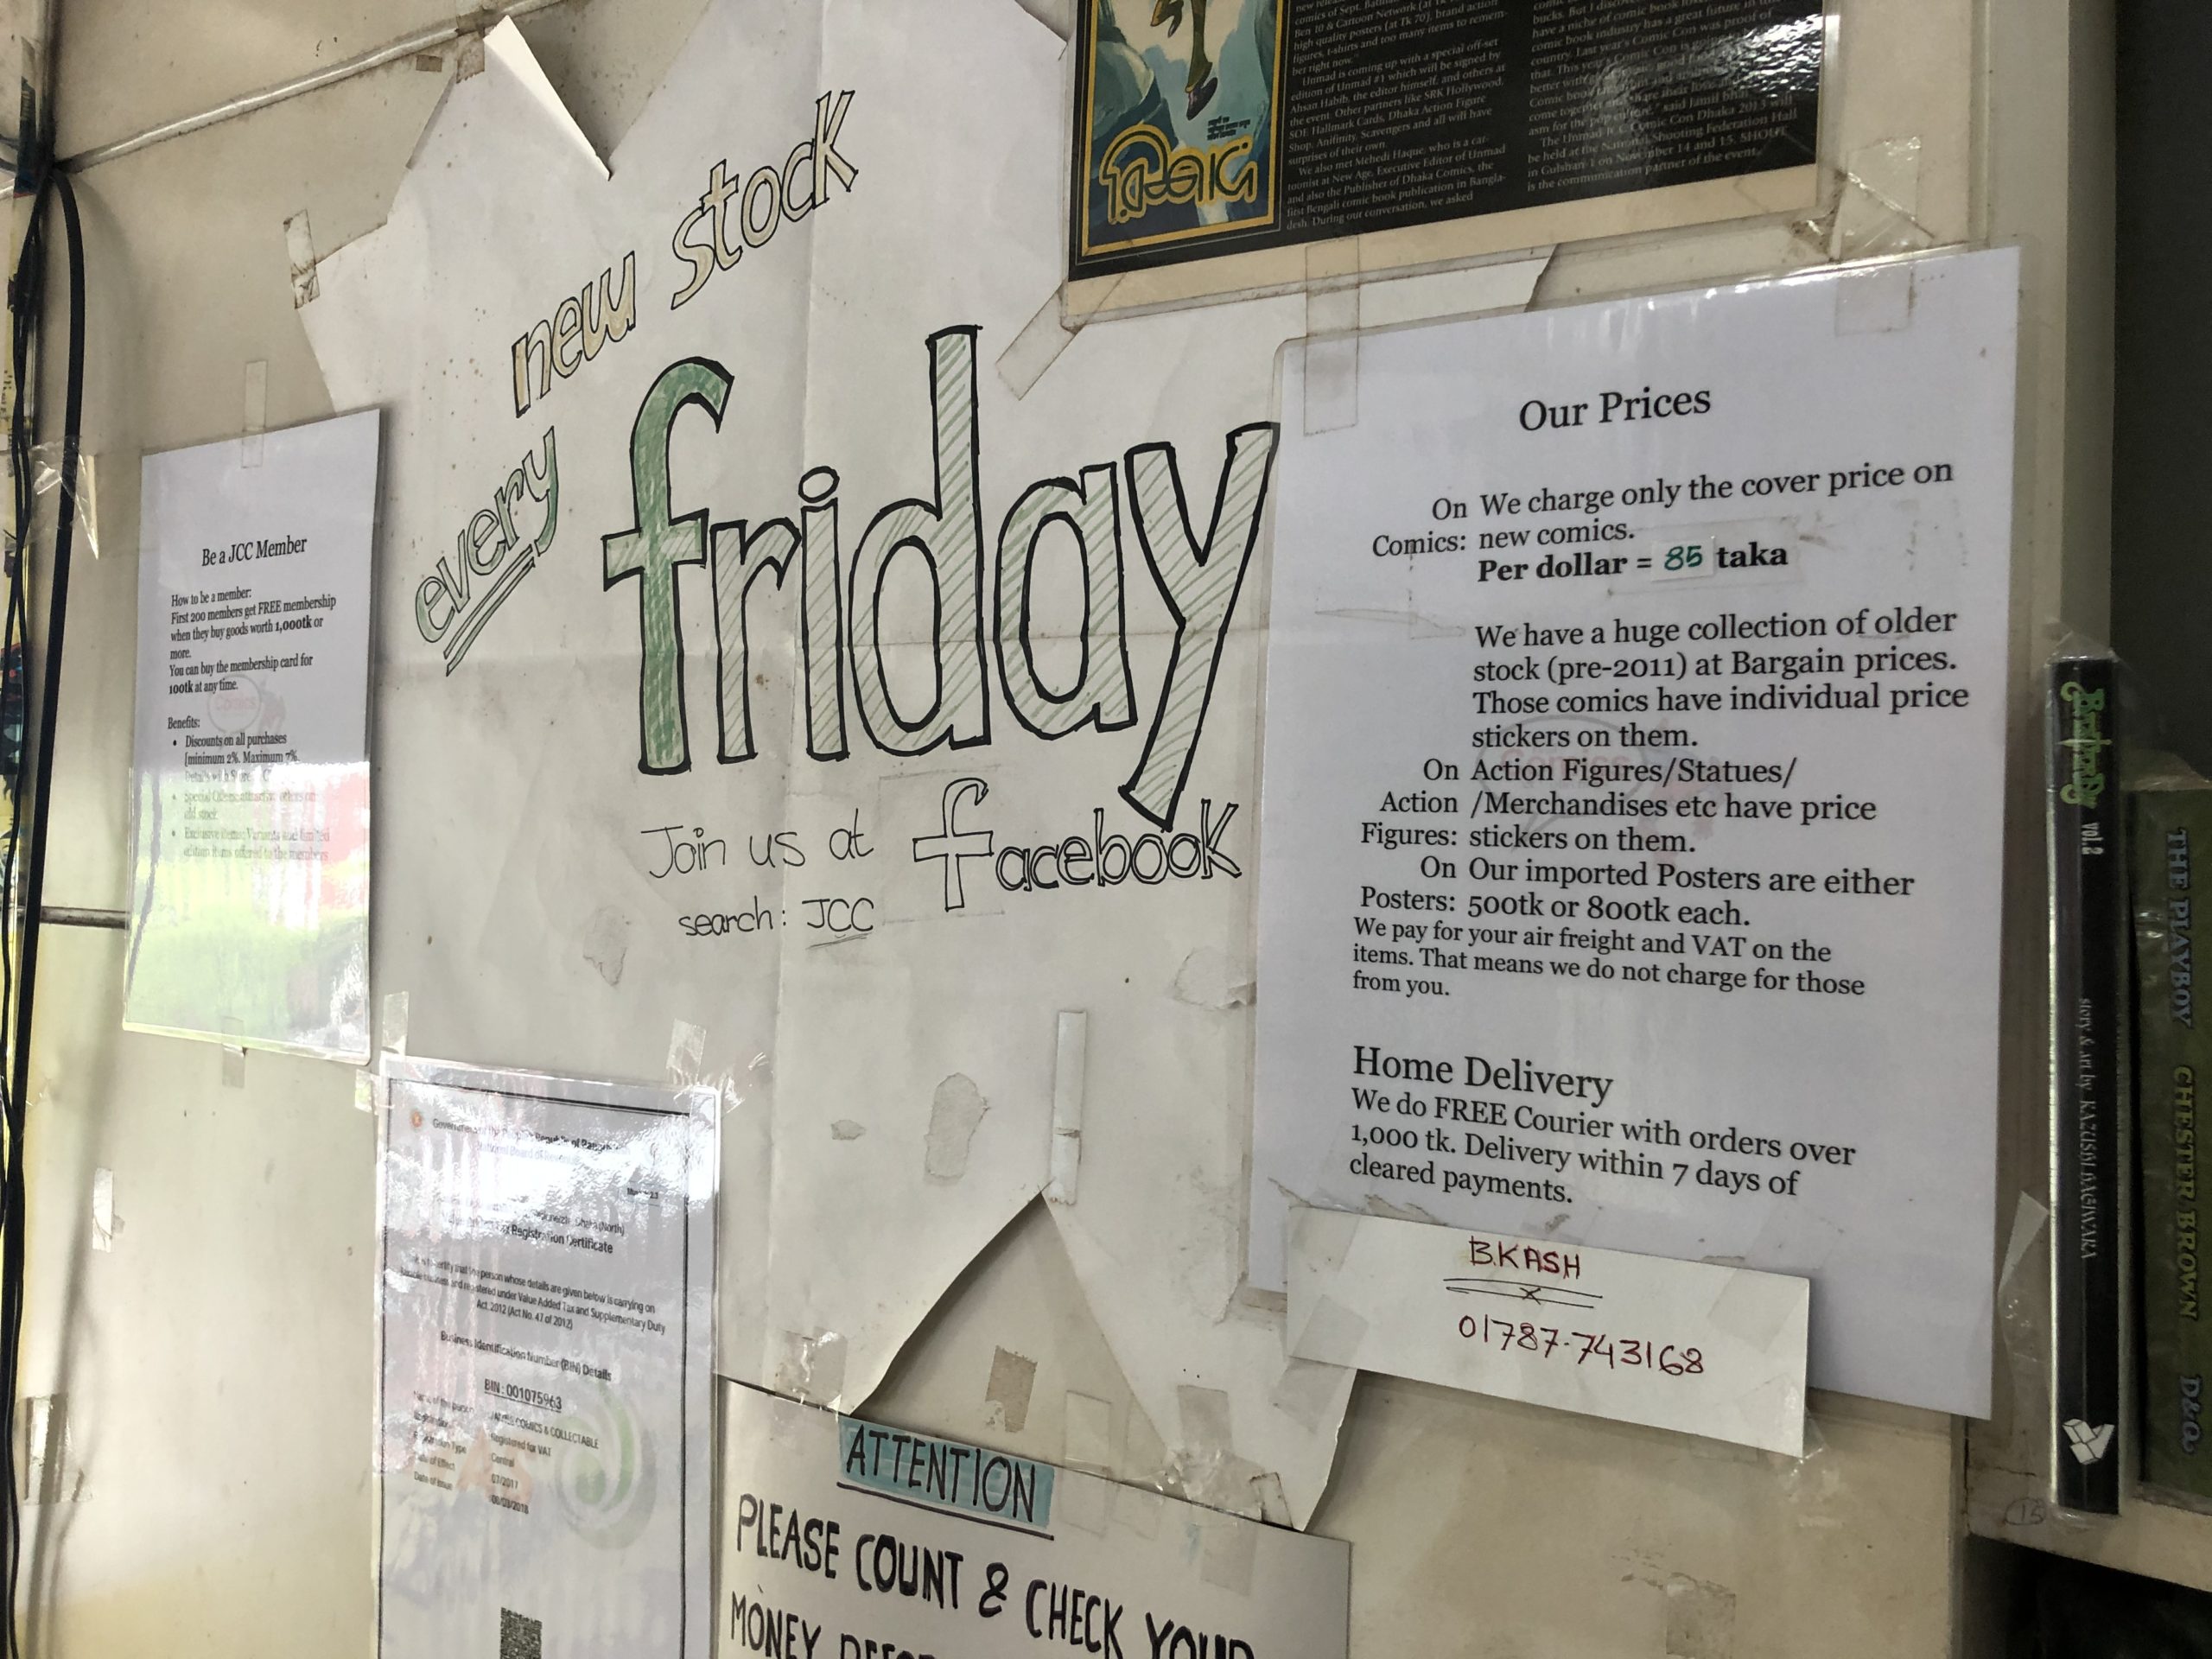 new stock
every
friday
Join us at facebook
search: JCC
new
comics of Sept.
Ben 10 & Cartoon Network (at Tk
high quality posters (at Tk 70), brand action
figures, t-shirts and too many items to remem-
ber right now."
Unmad is coming up with a special off-set
edition of Unmad #1 which will be signed by
Ahsan Habib, the editor himself, and others at
the event. Other partners like SRK Hollywood,
SOE Hallmark Cards, Dhaka Action Figure
Shop, Anifinity, Scavengers and all will have
surprises of their own.
We also met Mehedi Haque, who is a car-
toonist at New Age, Executive Editor of Unmad
and also the Publisher of Dhaka Comics, the
first Bengali comic book publication in Bangla-
desh. During our conversation, we asked
bucks. But I
have a niche of comic book
comic book industry has a great future in
country. Last year's Comic Con was proof of
that. This year's Comic Con is
better with
Comic book
come together
asm for the pop culture," said Jamil bhai.
The Unmad JCC Comic Con Dhaka 2013 will
be held at the National Shooting Federation Hall
in Gulshan-1 on November 14 and 15. SHOUT
is the communication partner of the event.
Be a JCC Member
How to be a member:
First 200 members get FREE membership
when they buy goods worth 1,000tk or
more.
You can buy the membership card for
100tk at any time.
Benefits:
• Discounts on all purchases
[minimum 2%. Maximum 7%.
Our Prices
On We charge only the cover price on
Comics: new comics.
Per dollar = 85 taka
We have a huge collection of older
stock (pre-2011) at Bargain prices.
Those comics have individual price
stickers on them.
On Action Figures/Statues/
Action /Merchandises etc have price
Figures: stickers on them.
On Our imported Posters are either
Posters: 500tk or 800tk each.
We pay for your air freight and VAT on the
items. That means we do not charge for those
from you.
Home Delivery
We do FREE Courier with orders over
1,000 tk. Delivery within 7 days of
cleared payments.
BKASH
01787-743168
Registration Certificate
certify that the person whose details are given below is carrying on
registered under Value Added Tax and Supplementary Duty
Act, 2012 (Act No. 47 of 2012)
Business Identification Number (BIN) Details
BIN : 001075963
COMICS & COLLECTABLE
Registered for VAT
Central
07/2017
Date of Effect
Date of Issue
ATTENTION
PLEASE COUNT & CHECK YOUR
MONEY
vol.2
story & art by KAZUSHI HAGIWARA
THE PLAYBOY CHESTER BROWN D&Q